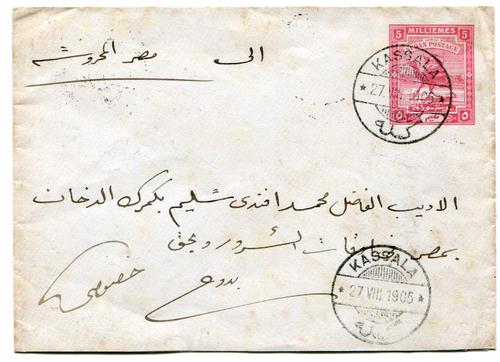 5 MILLIEMES 5
SUDAN POSTAGE
الى مصر المحروسة
KASSALA
27 VIII 1905
كسلة
الاديب الفاضل محمد افندى سليم بكمرك الدخان
بمصر
بدوح
خصوصي
KASSALA
27 VIII 1905
كسلة